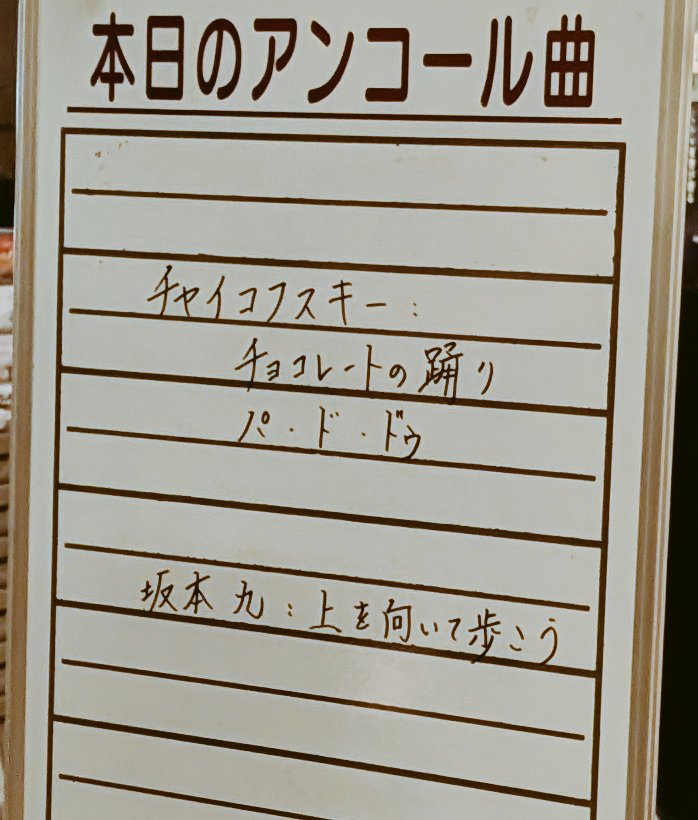 本日のアンコール曲
チャイコフスキー:
チョコレートの踊り
パ・ド・ドゥ
坂本 九:上を向いて歩こう